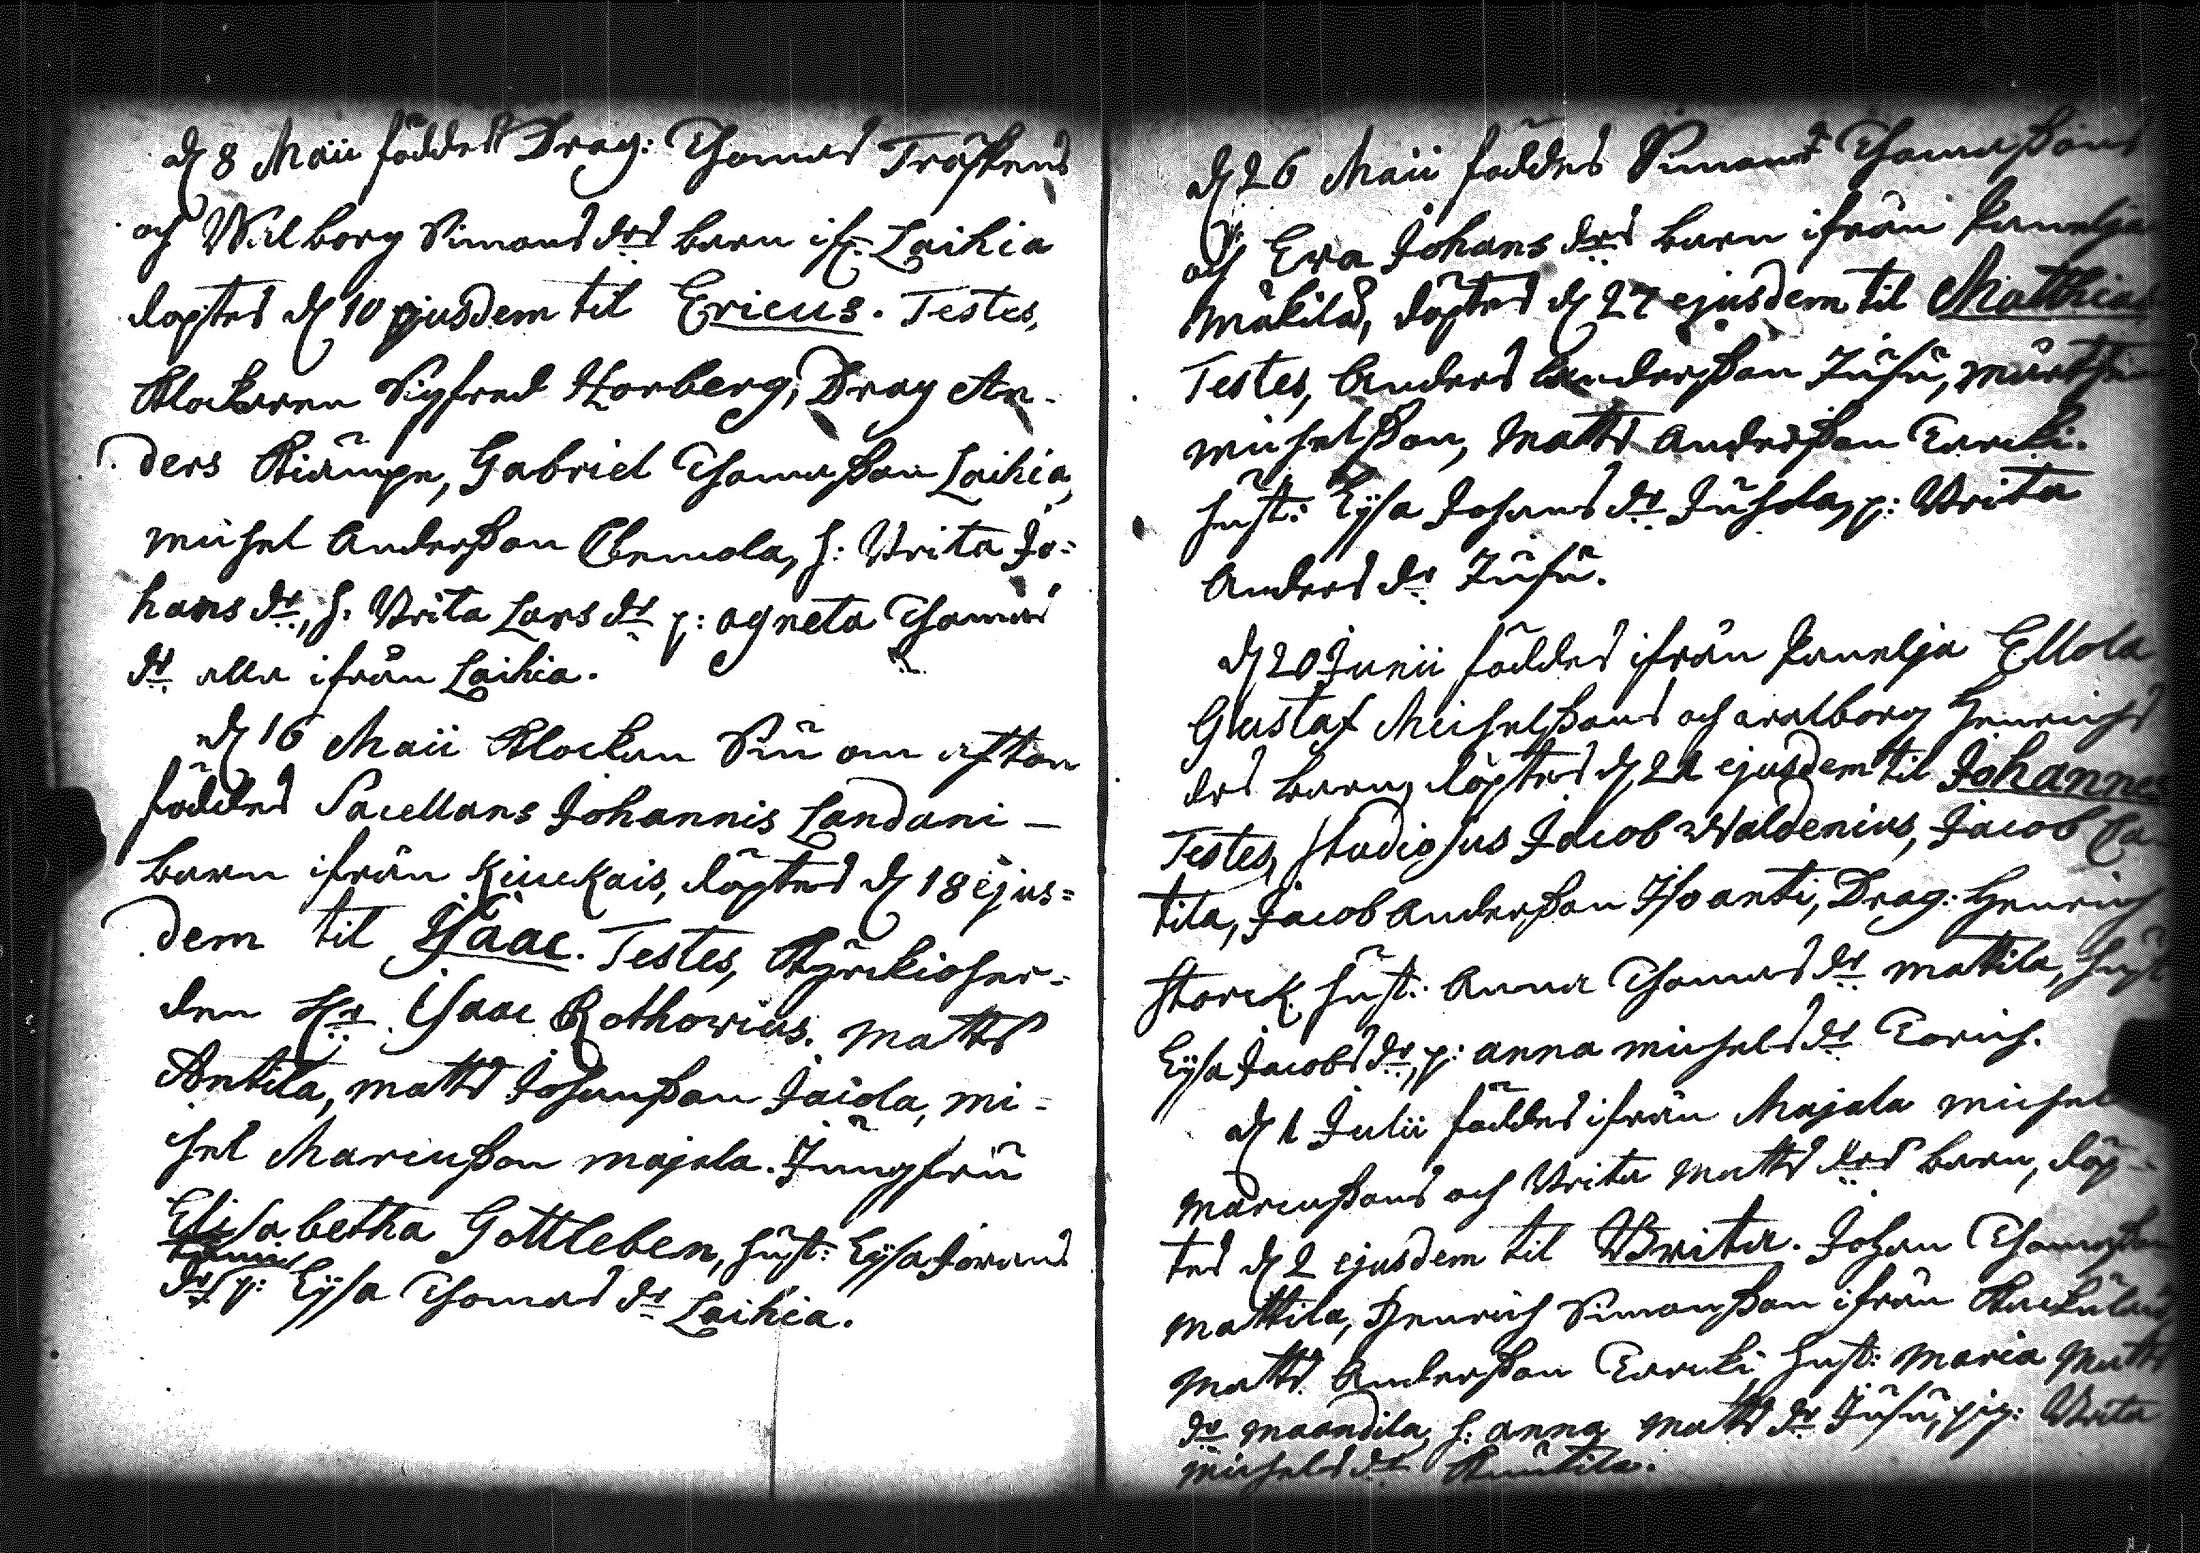 d. 8 Maii föddes Drag: Thomas Träskens
och Walborg Simons drs barn ifr. Laihia
döptes d. 10 ejusdem til Ericus. Testes,
Klockaren Sigfred Norberg, Drag An-
ders Kiämpe, Gabriel Thomasson Laihia,
Michel Andersson Clemola, h: Brita Jo=
hans dr, h. Brita Lars dr p: Agneta Thomas
dr alla ifrån Laihia.
d. 16 Maii Klockan Siu om afton
föddes Sacellans Johannis Landani —
barn ifrån Kiuckais, döptes d. 18 ejus=
dem til Isaac. Testes, Kyrckioher=
den Hr. Isaac Rothovius. Matts
Antila, Matts Johansson Jaiola, Mi=
chel Marcusson Majala. Jungfru
Elisabetha Gottleben, hust: Lysa Jörans
dr p: Lysa Thomas dr Laihia.
d. 26 Maii föddes Simons Thomassons
och Eva Johans drs barn ifrån Panelja
Mäkilä, döptes d. 27 ejusdem til Matthias
Testes, Anders Andersson Jusu,
Michelsson, Matts Andersson Eercki.
hust: Lysa Johans dr Juhola, p: Brita
Anders dr Jusu.
d. 20 Junii föddes ifrån Panelja Ellola
Gustaf Michelssons och Walborg Henrichs
drs barn, döptes d. 21 ejusdem til Johannes
Testes, Studiosus Jacob Waldenius, Jacob
tila, Jacob Andersson Iso anti, Drag: Henrich
Storck hust: Anna Thomas dr Mattila, hust
Lysa Jacobs dr, p: Anna Michels dr Eerich.
d. 1 Julii föddes ifrån Majala Michel
Marcussons och Brita Matts drs barn, döp-
tes d. 2 ejusdem til Brita. Johan Thomasson
Mattila, Henrich Simonsson ifrån
Matts Andersson Eercki, hust: Maria Matts
dr Maandila, h: Anna Matts dr Jusu, pig: Brita
Michels dr